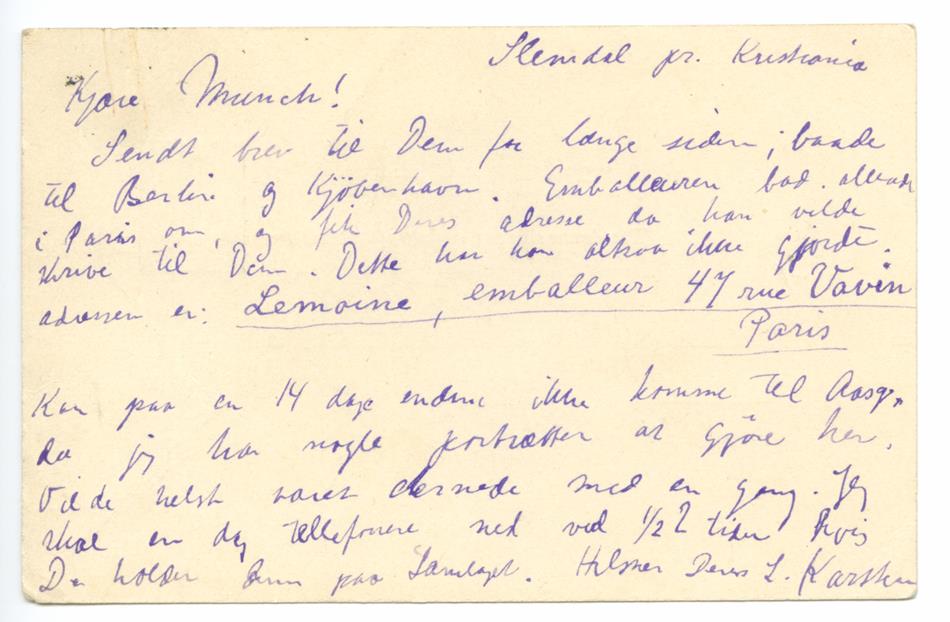 Slemdal pr. Kristiania
Kjære Munch!
Sendt brev til Dem for længe siden; baade
til Berlin og Kjöbenhavn. Emballeuren bad
i Paris om, og fik Deres adresse da han vilde
skrive til Dem. Dette har han altsaa ikke gjort.
adressen er: Lemoine, emballeur 47 rue Vavin
Paris
Kan paa en 14 dage endnu ikke komme til Aasg.,
da jeg har nogle portrætter at gjöre her.
Vilde helst været dernede med en gang. Jeg
skal en dag tellefonere ned ved 1/2 2 tiden hvis
De holder paa. Hilsner Deres L. Karsten